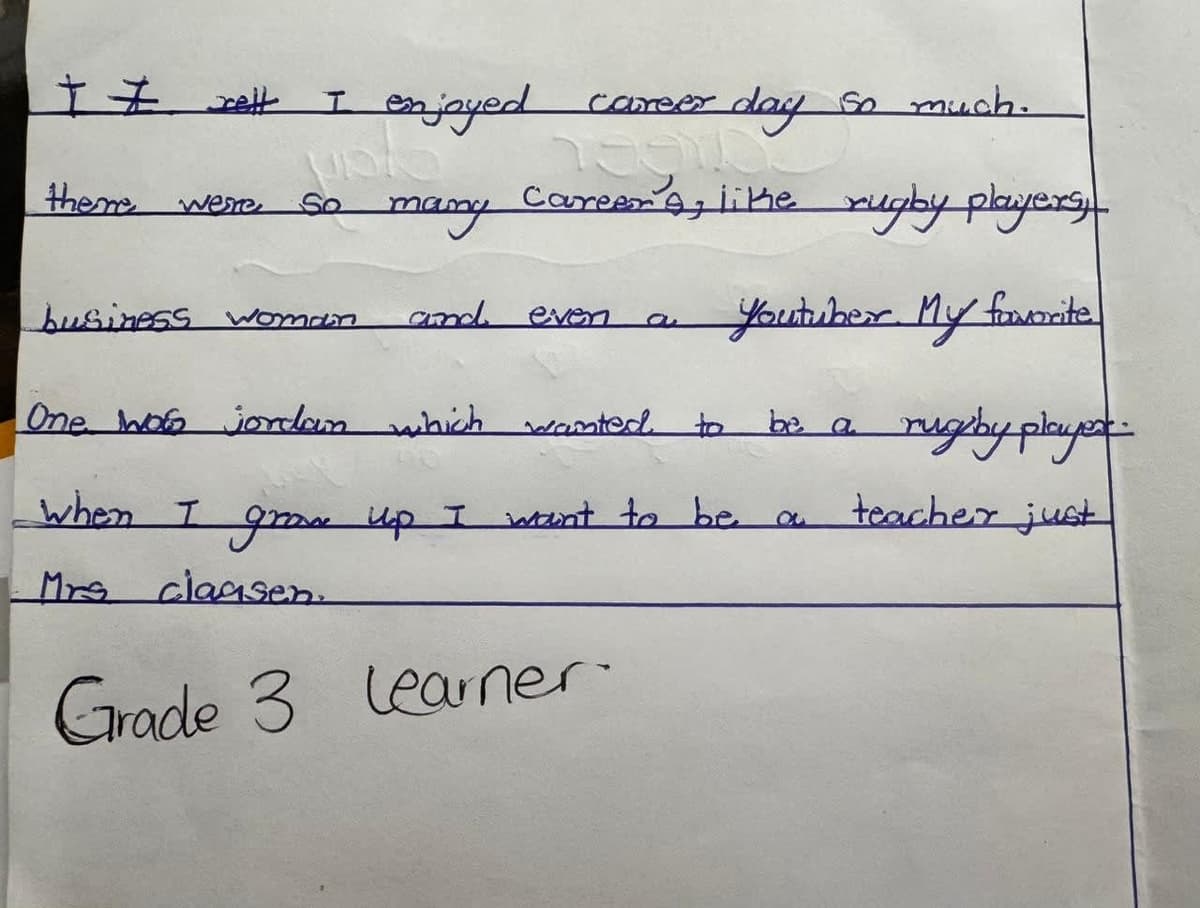 I enjoyed career day so much.
there were so many Career's, like rugby players,
business woman and even a Youtuber. My favorite
One was jordan which wanted to be a rugby player.
when I grow up I want to be a teacher just
Mrs claasen.
Grade 3 learner